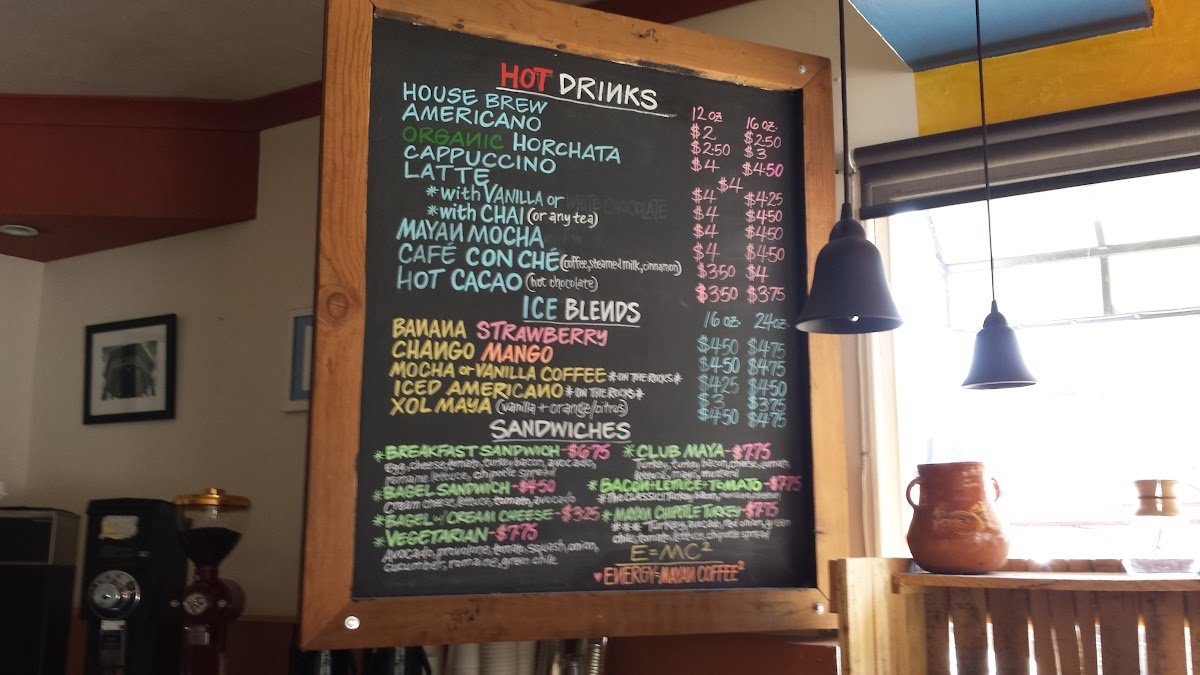 HOT DRINKS
12 oz 16 oz.
HOUSE BREW $2 $2.50
AMERICANO $2.50 $3
ORGANIC HORCHATA $4 $4.50
CAPPUCCINO $4
LATTE $4 $4.25
*with VANILLA or WHITE CHOCOLATE $4 $4.50
*with CHAI (or any tea) $4 $4.50
MAYAN MOCHA $4 $4.50
CAFÉ CON CHÉ (coffee, steamed milk, cinnamon) $3.50 $4
HOT CACAO (hot chocolate) $3.50 $3.75
ICE BLENDS
16 oz. 24 oz.
BANANA STRAWBERRY $4.50 $4.75
CHANGO MANGO $4.50 $4.75
MOCHA or VANILLA COFFEE *ON THE ROCKS* $4.25 $4.50
ICED AMERICANO *ON THE ROCKS* $3 $3.75
XOL MAYA (vanilla + orange/citrus) $4.50 $4.75
SANDWICHES
*BREAKFAST SANDWICH-$6.75
egg, cheese, tomato, turkey bacon, avocado,
romaine lettuce, chipotle spread
*BAGEL SANDWICH-$4.50
Cream cheese, lettuce, tomato, avocado
*BAGEL w/ CREAM CHEESE-$3.25
*VEGETARIAN-$7.75
Avocado, provolone, tomato, squash, onion,
cucumber, romaine, green chile
*CLUB MAYA-$7.75
Turkey, turkey bacon, cheese, tomato,
lettuce, mayo, mustard
*BACON+LETTUCE+TOMATO-$7.75
*THE CLASSIC! Turkey bacon,
*MAYAN CHIPOTLE TURKEY-$7.75
*** Turkey, avocado, red onion, green
chile, tomato, lettuce, chipotle spread
E=MC²
♥ENERGY=MAYAN COFFEE²